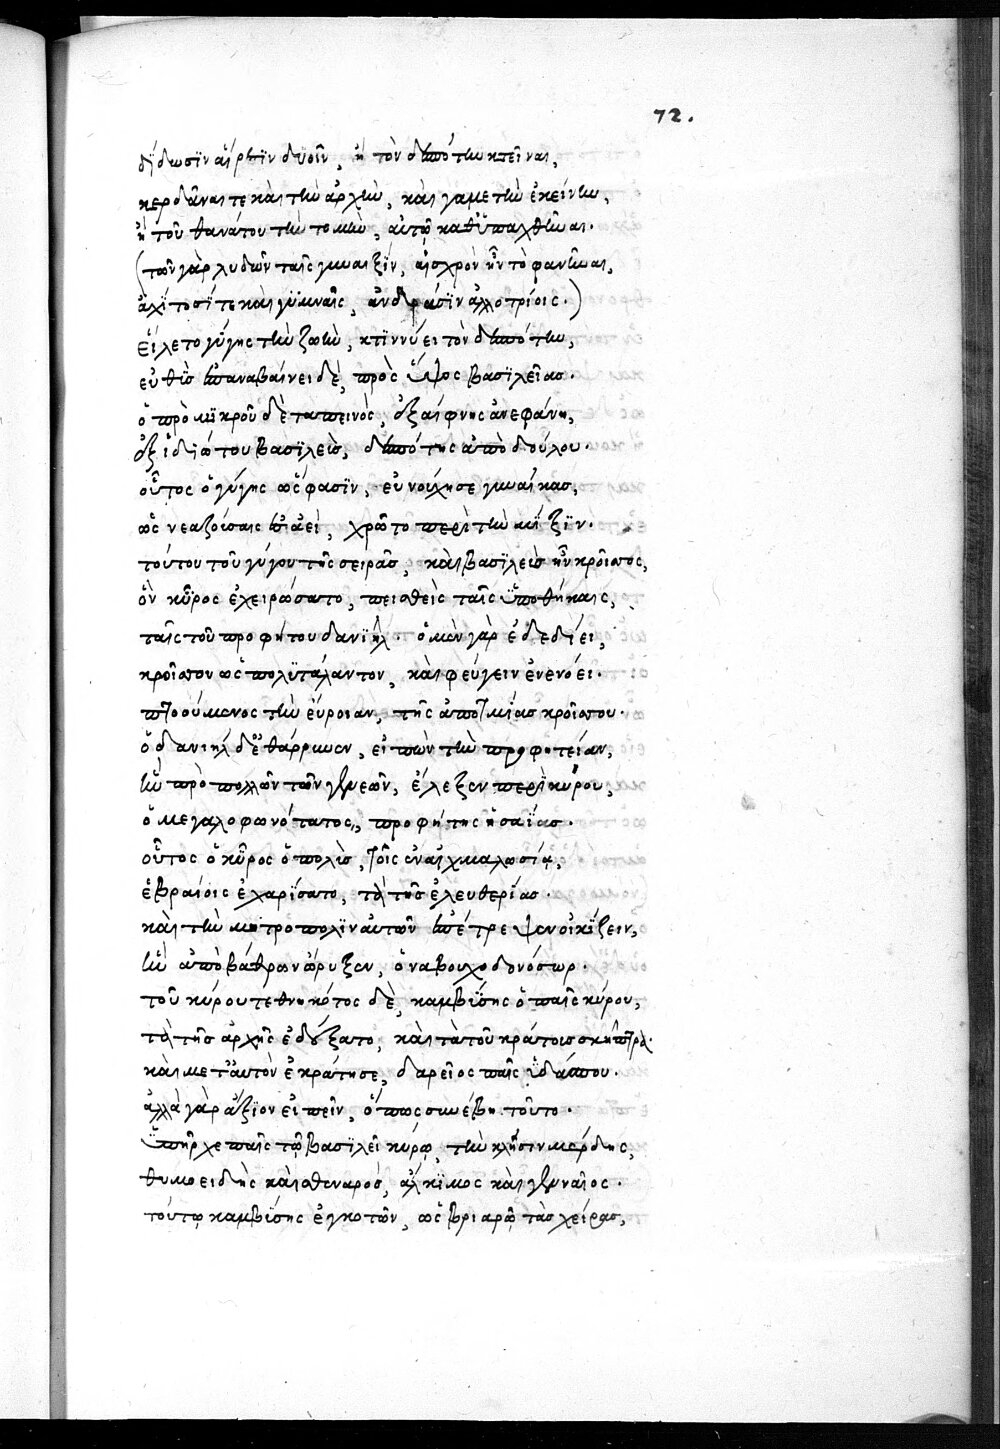 72.
δίδωσϊν αἵρεσϊν δυοῖν, ἢ τὸν δεσπότην κτεῖναι,
κερδᾶναι τε καὶ τὴν ἀρχὴν, καὶ γαμετὴν ἐκείνην,
ἢ τοῦ θανάτου τὴν τομὴν, αὐτῷ καθϋπαχθῆναι.
(τῶν γὰρ λυδῶν ταῖς γυναιξὶν, αἰσχρὸν ἦν τὸ φανῆναι,
ἀχίτοσί τε καὶ γϋμναῖς, ἀνδράσϊν ἀλλοτρίοις.)
εἵλετο γύγης τὴν ζωὴν, κτϊννύει τὸν δεσπότην,
εὐθὺς ἐπαναβαίνει δὲ, πρὸς ὕψος βασϊλείας.
ὁ πρὸ μϊκροῦ δὲ ταπεινὸς, ἐξαίφνης ἀνεφάνη,
ἐξ ἰδιώτου βασϊλεὺς, δεσπότης ἀπὸ δούλου.
οὗτος ὁ γύγης ὥς φασϊν, εὐνούχησε γυναίκας,
ὡς νεαζούσαις ἐπαεὶ, χρῷτο περὶ τὴν μΐξϊν.
τούτου τοῦ γύγου τῆς σειρᾶς, καὶ βασϊλεὺς ἦν κροῖσος,
ὃν κῦρος ἐχειρώσατο, πεισθεὶς ταῖς ὑποθήκαις,
ταῖς τοῦ προφήτου δανϊήλ. ὁ μὲν γὰρ ἐδεδίει,
κροῖσον ὡς πολϋτάλαντον, καὶ φεύγειν ἐνενόει.
πτοούμενος τὴν εὔροιαν, τῆς ἀποτμίας κροίσου.
ὁ δανιὴλ δ' ἐθάρρυνεν, εἰπὼν τὴν προφητείαν,
ἣν πρὸ πολλῶν τῶν γενεῶν, ἔλεξεν περὶ κύρου,
ὁ μεγαλοφωνότατος, προφήτης ἡσαΐας.
οὗτος ὁ κῦρος ὁ πολὺς, τοῖς ἐν αἰχμαλωσίᾳ,
ἑβραίοις ἐχαρίσατο, τὰ τῆς ἐλευθερίας.
καὶ τὴν μητρόπολϊν αὐτῶν ἐπέτρεψεν οἰκίζειν,
ἣν ἀπὸ βάθρων ὤρυξεν, ὁ ναβουχοδονόσωρ.
τοῦ κύρου τεθνηκότος δὲ, καμβύσης ὁ παῖς κύρου,
τὰ τῆς ἀρχῆς ἐδέξατο, καὶ τὰ τοῦ κράτους σκῆπτρα.
καὶ μετ' αὐτὸν ἐκράτησε, δαρεῖος παῖς ὑδάσπου.
ἀλλὰ γὰρ ἄξιον εἰπεῖν, ὅπως συνέβη τοῦτο.
ὑπῆρχε παῖς τῷ βασϊλεῖ κύρῳ, τὴν κλῆσιν μέρδης,
θυμοειδὴς καὶ σθεναρὸς, ἄλκϊμος καὶ γενναῖος.
τούτῳ καμβύσης ἐγκοτῶν, ὡς βριαρῷ τὰς χεῖρας,